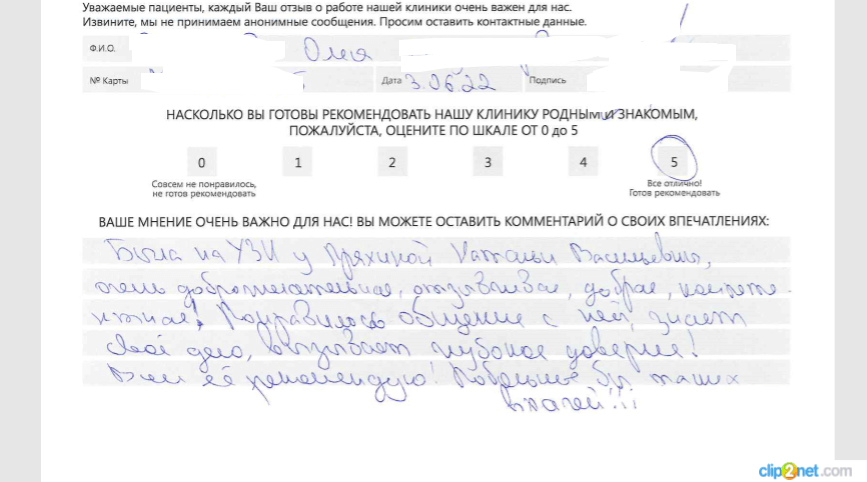 Уважаемые пациенты, каждый Ваш отзыв о работе нашей клиники очень важен для нас.
Извините, мы не принимаем анонимные сообщения. Просим оставить контактные данные.
Ф.И.О. Оля
№ Карты Дата 3.06.22 Подпись
НАСКОЛЬКО ВЫ ГОТОВЫ РЕКОМЕНДОВАТЬ НАШУ КЛИНИКУ РОДНЫМ И ЗНАКОМЫМ,
ПОЖАЛУЙСТА, ОЦЕНИТЕ ПО ШКАЛЕ ОТ 0 до 5
0 1 2 3 4 5
Совсем не понравилось, Все отлично!
не готов рекомендовать Готов рекомендовать
ВАШЕ МНЕНИЕ ОЧЕНЬ ВАЖНО ДЛЯ НАС! ВЫ МОЖЕТЕ ОСТАВИТЬ КОММЕНТАРИЙ О СВОИХ ВПЕЧАТЛЕНИЯХ:
Была на УЗИ у Пряхиной Натальи Васильевны,
очень доброжелательная, отзывчивая, добрая, компете-
нтная! Понравилось общение с ней, знает
своё дело, вызывает глубокое доверие!
Всем её рекомендую! Побольше бы таких
врачей!!!
clip2net.com